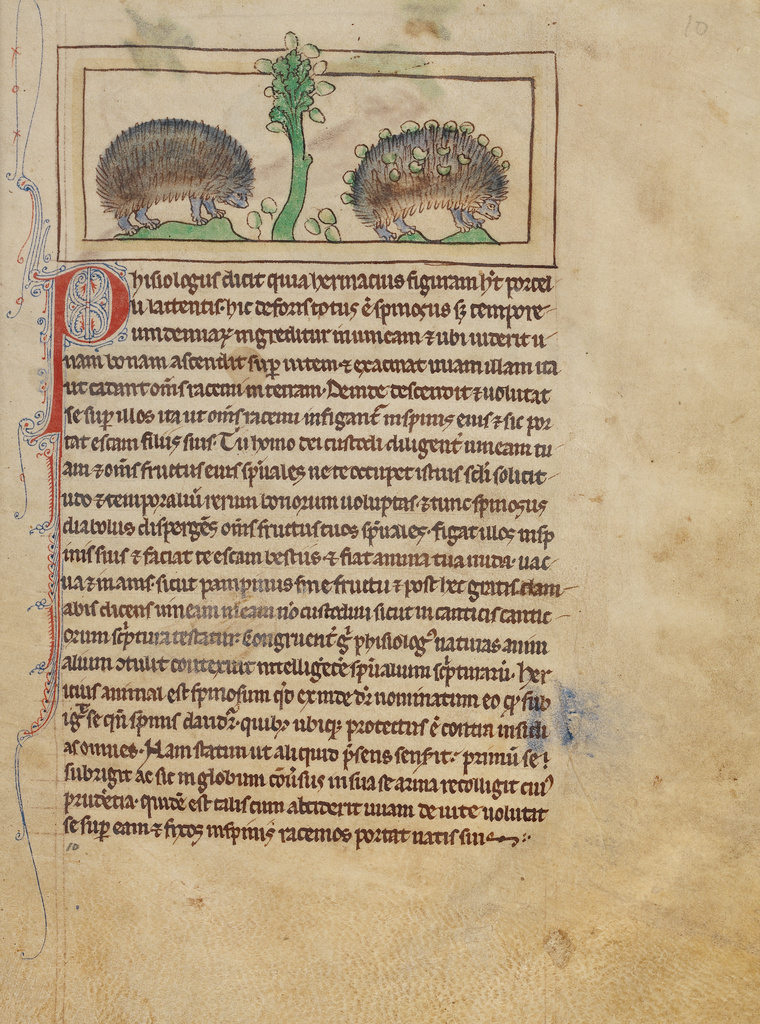 10
Phisiologus dicit quia herinacius figuram h̃t porcel
li lactentis· hic deforis totus ẽ spinosus sꝫ tempore
uindemiaꝝ ingreditur in uineam ⁊ ubi uiderit u
uam bonam ascendit suꝑ uitem· ⁊ exacinat uuam illam ita
ut cadant om̃s racemi in terram· Deinde descendit ⁊ uolutat
se suꝑ illos ita ut om̃s racemi infigant̃ in spinis eius ⁊ sic por
tat escam filiis suis· Tu homo dei custodi diligent̃ uineam tu
am ⁊ om̃s fructus eius sp̃uales ne te occupet istius sc̃li solicit
udo ⁊ temporaliũ rerum bonorum uoluptas· ⁊ tunc spinosus
diabolus dispergẽs om̃s fructus tuos sp̃uales· figat illos in sp
inis suis ⁊ faciat te escam bestiis· ⁊ fiat anima tua nuda· uac
ua ⁊ inanis· sicut pampinus sine fructu ⁊ post hec gratis clam
abis dicens uineam meam nõ custodiui sicut in canticis cantic
orum sc̃ptura testatur· Congruent̃ g̃ phisiologꝰ naturas anim
alium ↄtulit contexuit intelligẽtie sp̃ualium sc̃pturarũ· Her
itius animal est spinosum qd̃ exinde dr̃ nominatum eo qꝫ sub
ig̃t se qñ spinis claudit̃· quibꝫ ubiqꝫ protectus ẽ contra insidi
as omnes· Nam statim ut aliquid p̃sens senserit· primũ se
subrigit ac sic in globum cõuersus in sua se arma recolligit cuiꝰ
prudẽtia· quidẽ est talis cum absciderit uuam de uite uolutat
se suꝑ eam ⁊ fixos in spinis racemos portat natis suis
10